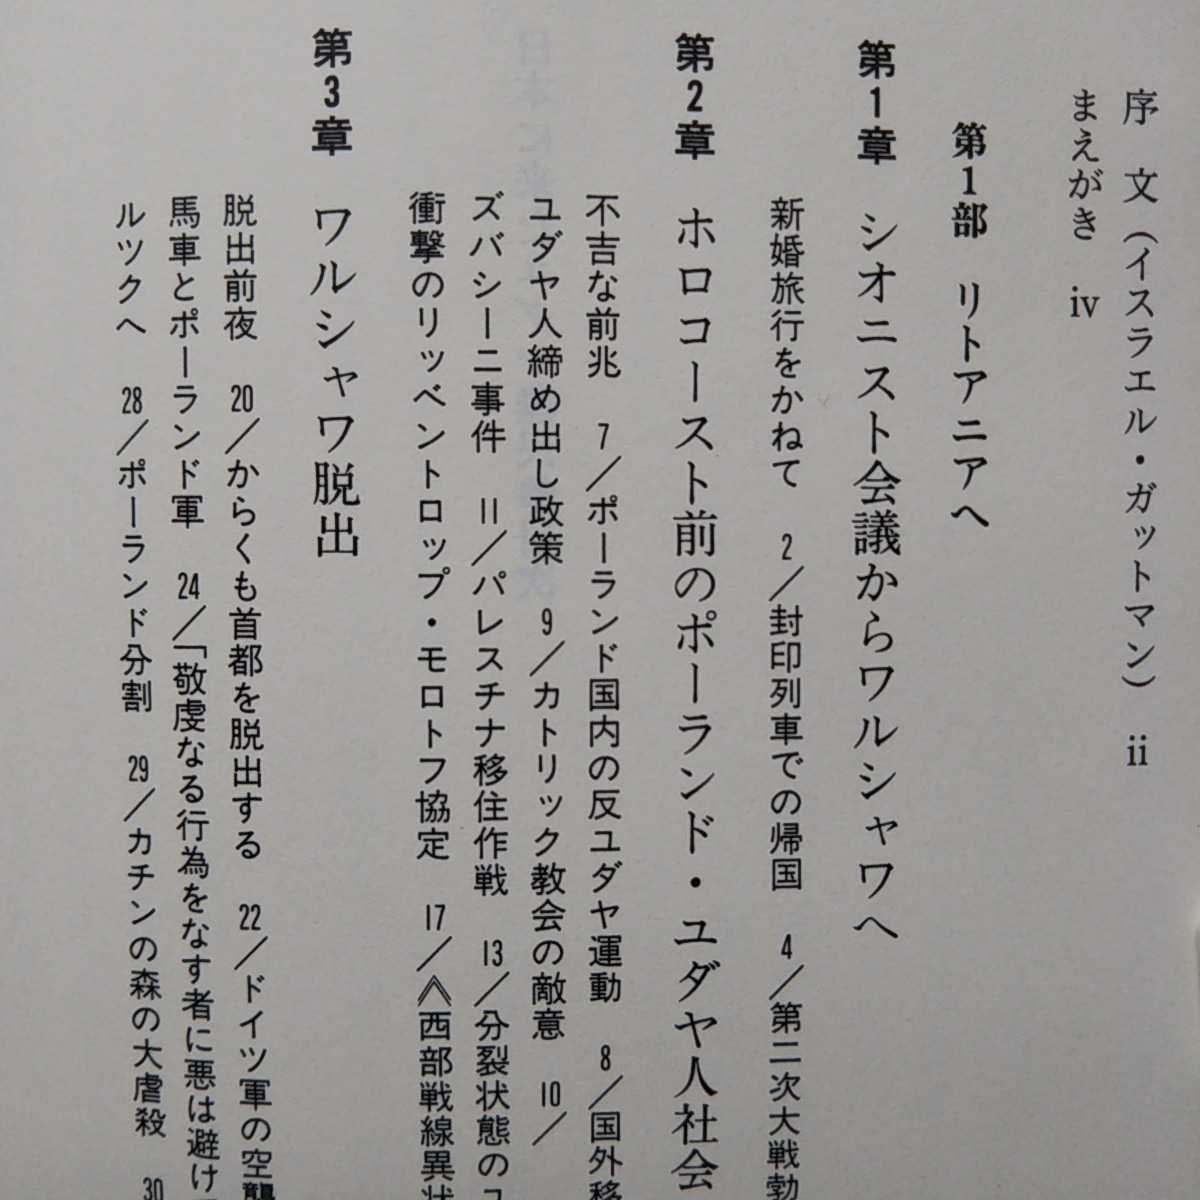 序　文（イスラエル・ガットマン）　ii
まえがき　iv
第1部　リトアニアへ
第1章　シオニスト会議からワルシャワへ
新婚旅行をかねて　2／封印列車での帰国　4／第二次大戦勃
第2章　ホロコースト前のポーランド・ユダヤ人社会
不吉な前兆　7／ポーランド国内の反ユダヤ運動　8／国外移
ユダヤ人締め出し政策　9／カトリック教会の敵意　10／
ズバシーニ事件　11／パレスチナ移住作戦　13／分裂状態のユ
衝撃のリッベントロップ・モロトフ協定　17／《西部戦線異状
第3章　ワルシャワ脱出
脱出前夜　20／からくも首都を脱出する　22／ドイツ軍の空襲
馬車とポーランド軍　24／「敬虔なる行為をなす者に悪は避け
ルツクへ　28／ポーランド分割　29／カチンの森の大虐殺　30